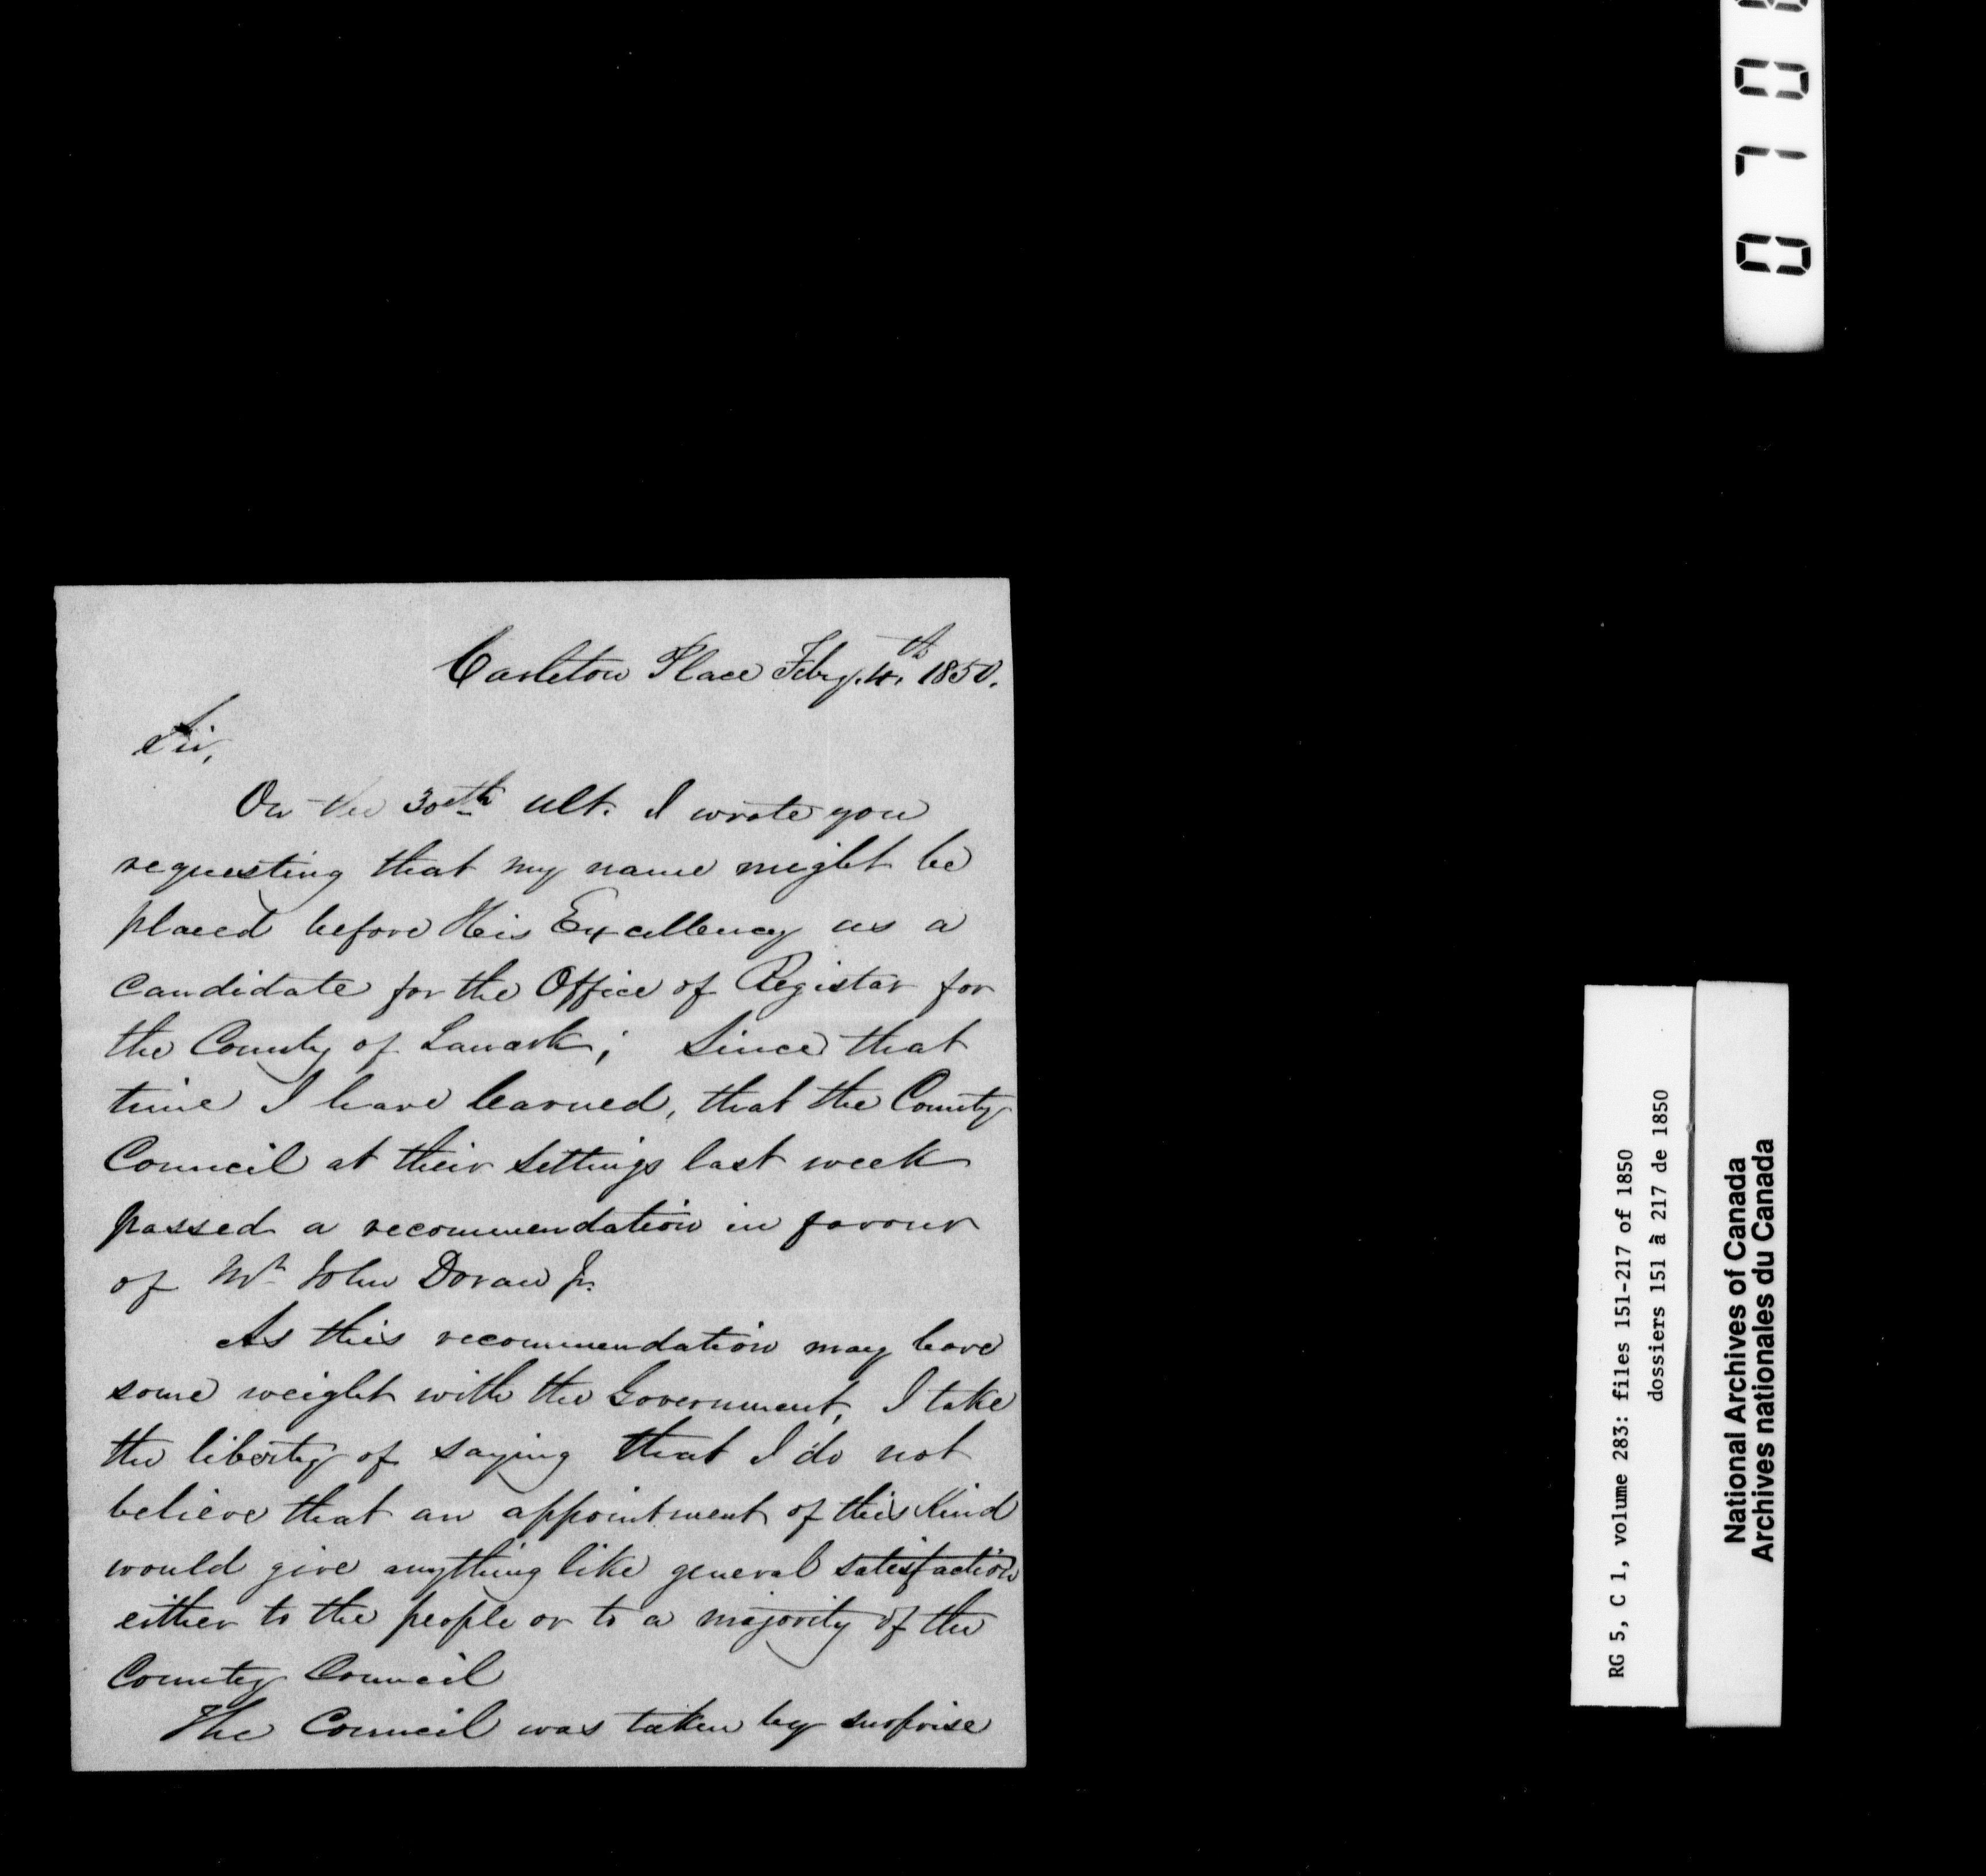 Carleton Place Feby. 4th. 1850.
Sir,
On the 30th ult. I wrote you
requesting that my name might be
placed before His Excellency as a
candidate for the Office of Registar for
the County of Lanark; Since that
time I have learned, that the County
Council at their Sittings last week
passed a recommendation in favour
of Mr John Doran Jr.
As this recommendation may have
some weight with the Government, I take
the liberty of saying that I do not
believe that an appointment of this kind
would give anything like general satisfaction
either to the people or to a majority of the
County Council
The Council was taken by surprise
RG 5, C 1, volume 283: files 151-217 of 1850
dossiers 151 à 217 de 1850
National Archives of Canada
Archives nationales du Canada
070